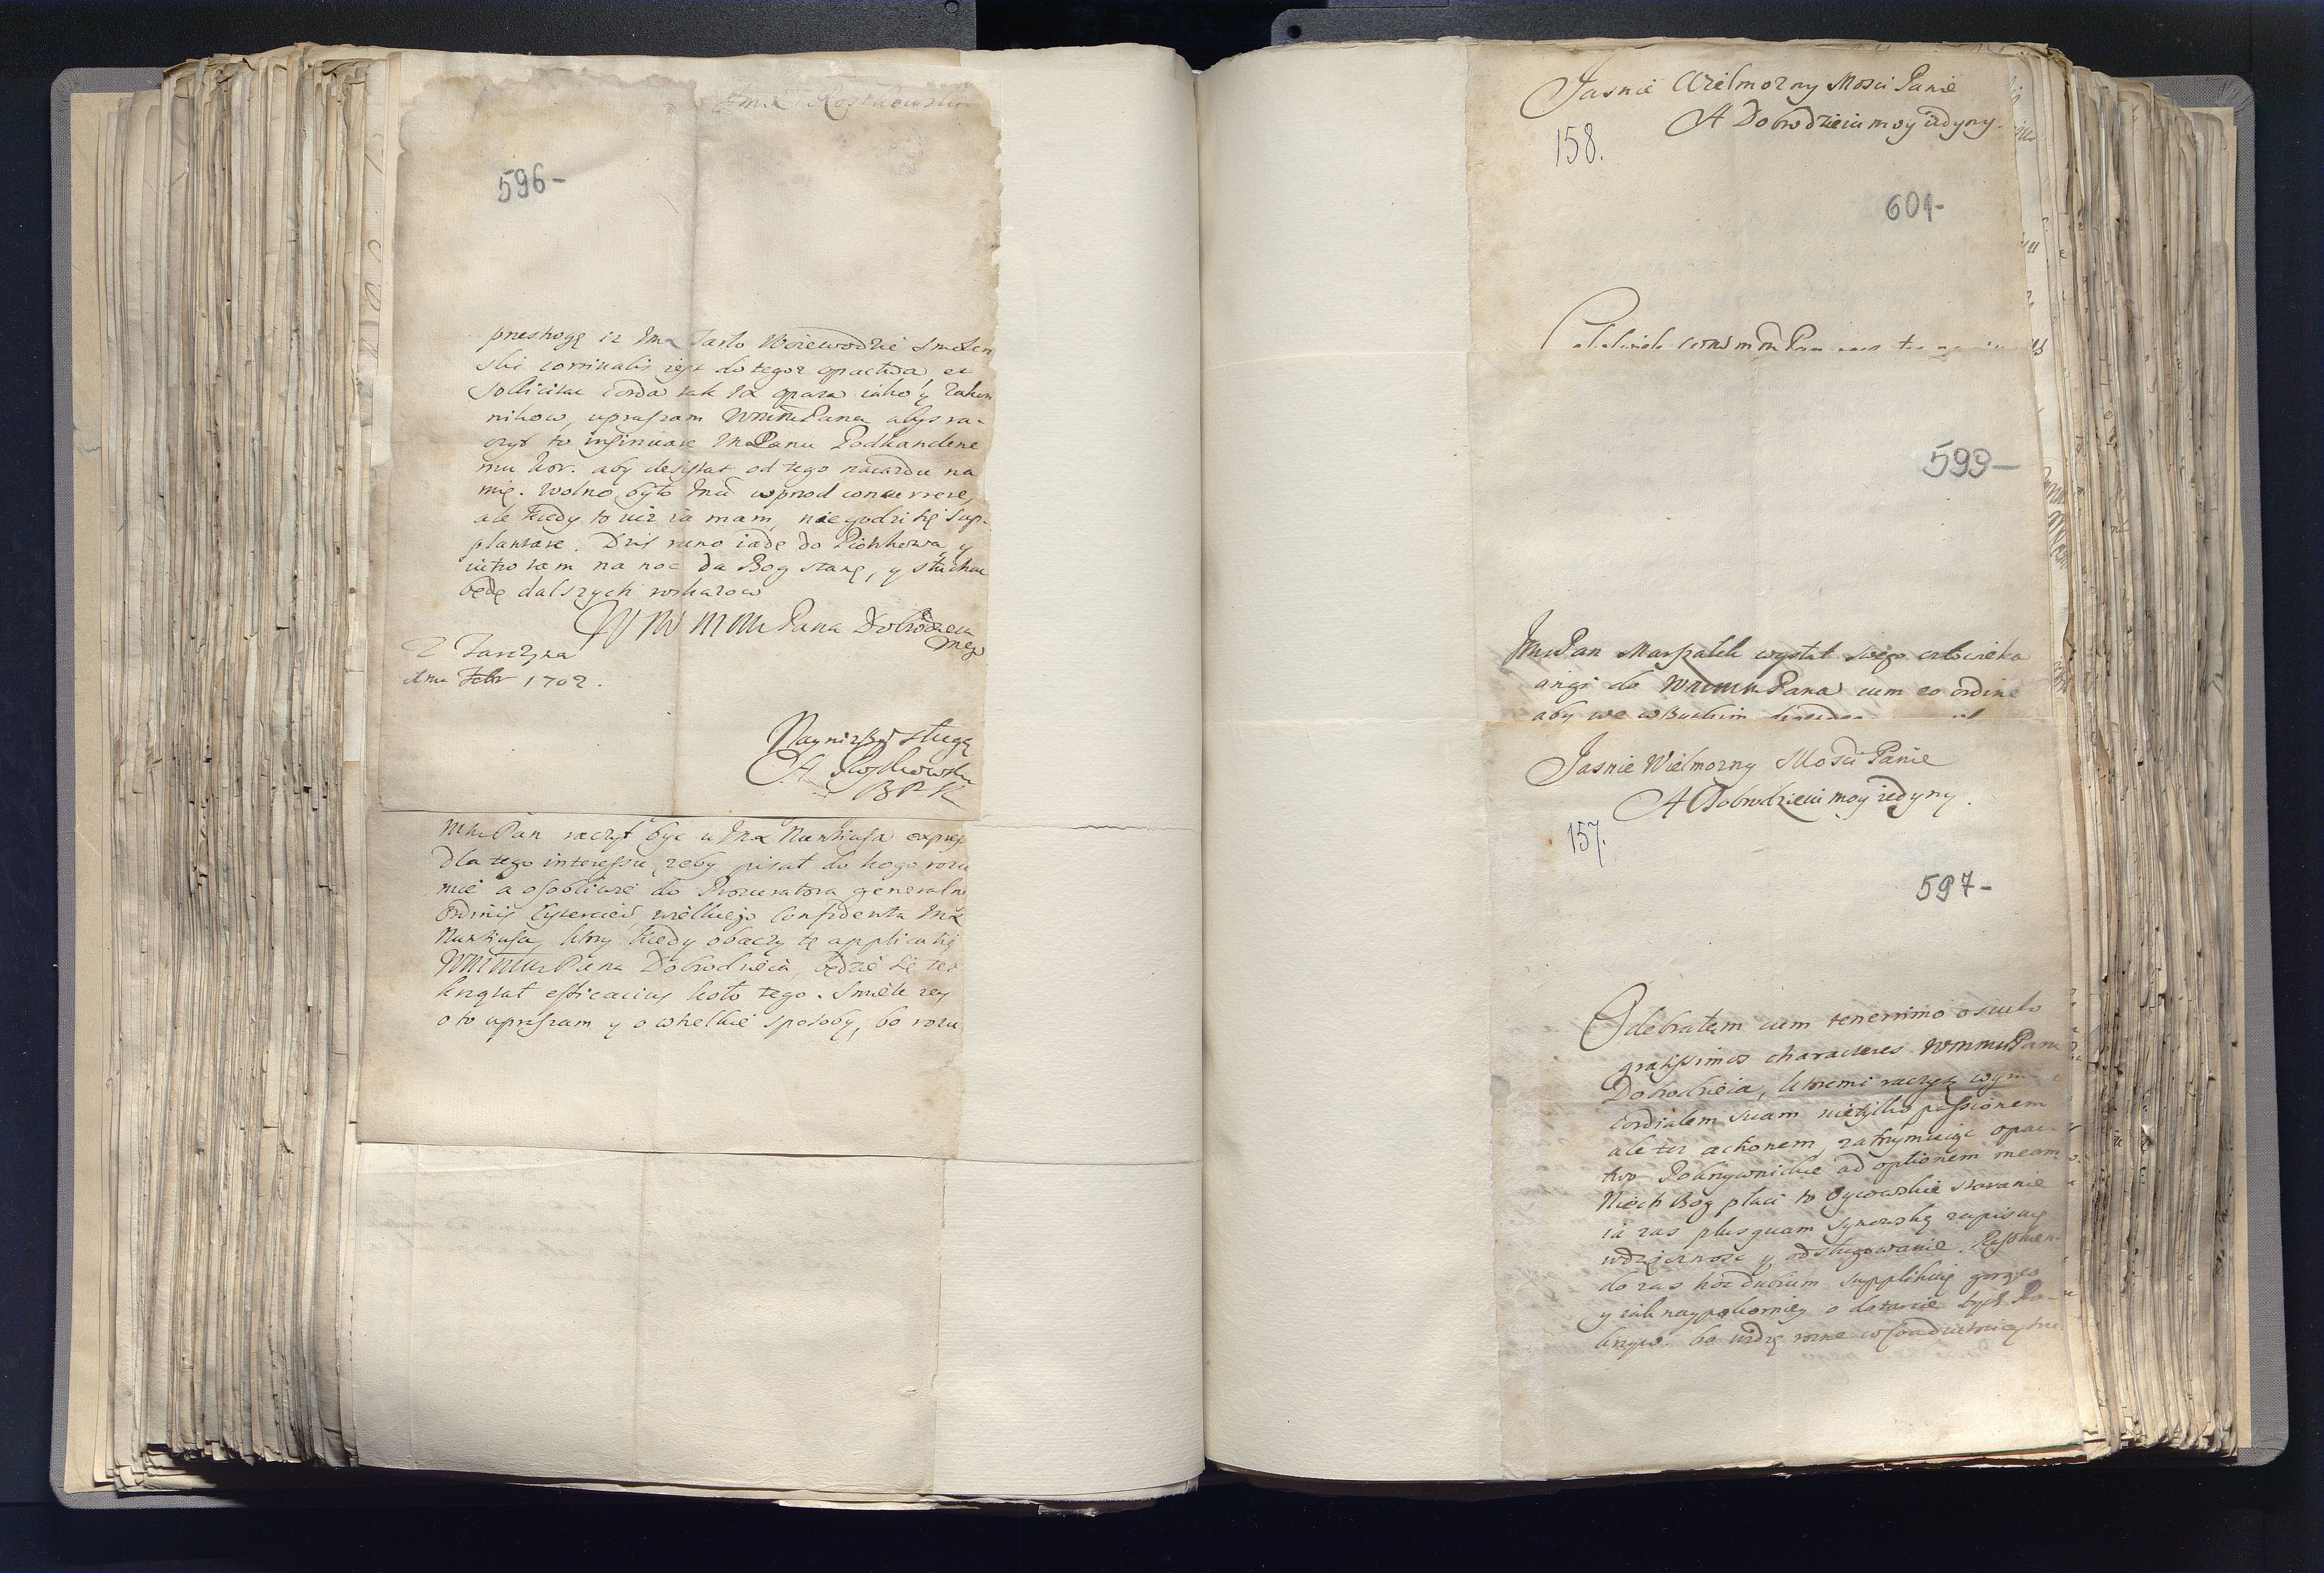 596-
przestrogę iz Imx Tarło Woiewodzic Smolen
ski corrivalis jest do tegoż opactwa, et
sollicitat corda tak JX opata iako y Zakon
nikow, upraszam WMMPana abyś ra-
czył to insinuare ImPanu Podkancle
mu Kor. aby desistat od tego na
mię. Wolno było Imci wprzod concurrere,
ale kiedy to już ia mam, nie godzi się sup-
plantare. Dziś rano iadę do Piotrkowa, y
iutro tam na noc da Bog stanę, y słuchac
będę dalszych roskazow
WM MM Pana Dobrodzieia
mego
Z Tarczyna
Febr 1702.
Nayniższy sługa
BPK
MMPan raczył być u Imx Nunciusza
dla tego interessu, żeby pisał do kogo rozu
mie a osobliwie do Procuratora generaln
Ordinis Cysterciew, wielkiego confidenta Imx
Nunciusza, ktory kiedy obaczy tę applicatię
WMMMPana Dobrodzieia, będzie się też
krzątał efficacius koło tego. Smiele
o to upraszam y o wszelkie sposoby, bo rozu
Jasnie Wielmozny Mosci Panie
A Dobrodzieiu moy iedyny.
158.
601-
599-
ImPan Marszałek wysłał swego człowieka
do WMMMPana cum eo ordine
aby we wszytkim
Jasnie Wielmozny Mosci Panie
A Dobrodzieiu moy iedyny.
157.
597-
Odebrałem cum tenerrimo osculo
gratissimos characteres WMMMPana
Dobrodzieia, ktoremi raczysz
cordialem suam nietylko passionem
ale też actionem, zatrzymuiąc opac
two Pokrzywnickie ad optionem meam
Niech Bog płaci to Oycowskie staranie
ia zas plusquam synowską zapisuię
wdzięcznosc y odsługowanie.
do zas hoc dubium supplikuię gorąco
y iak naypokorniey o dotarcie tych Po-
krzyw. bo widzę